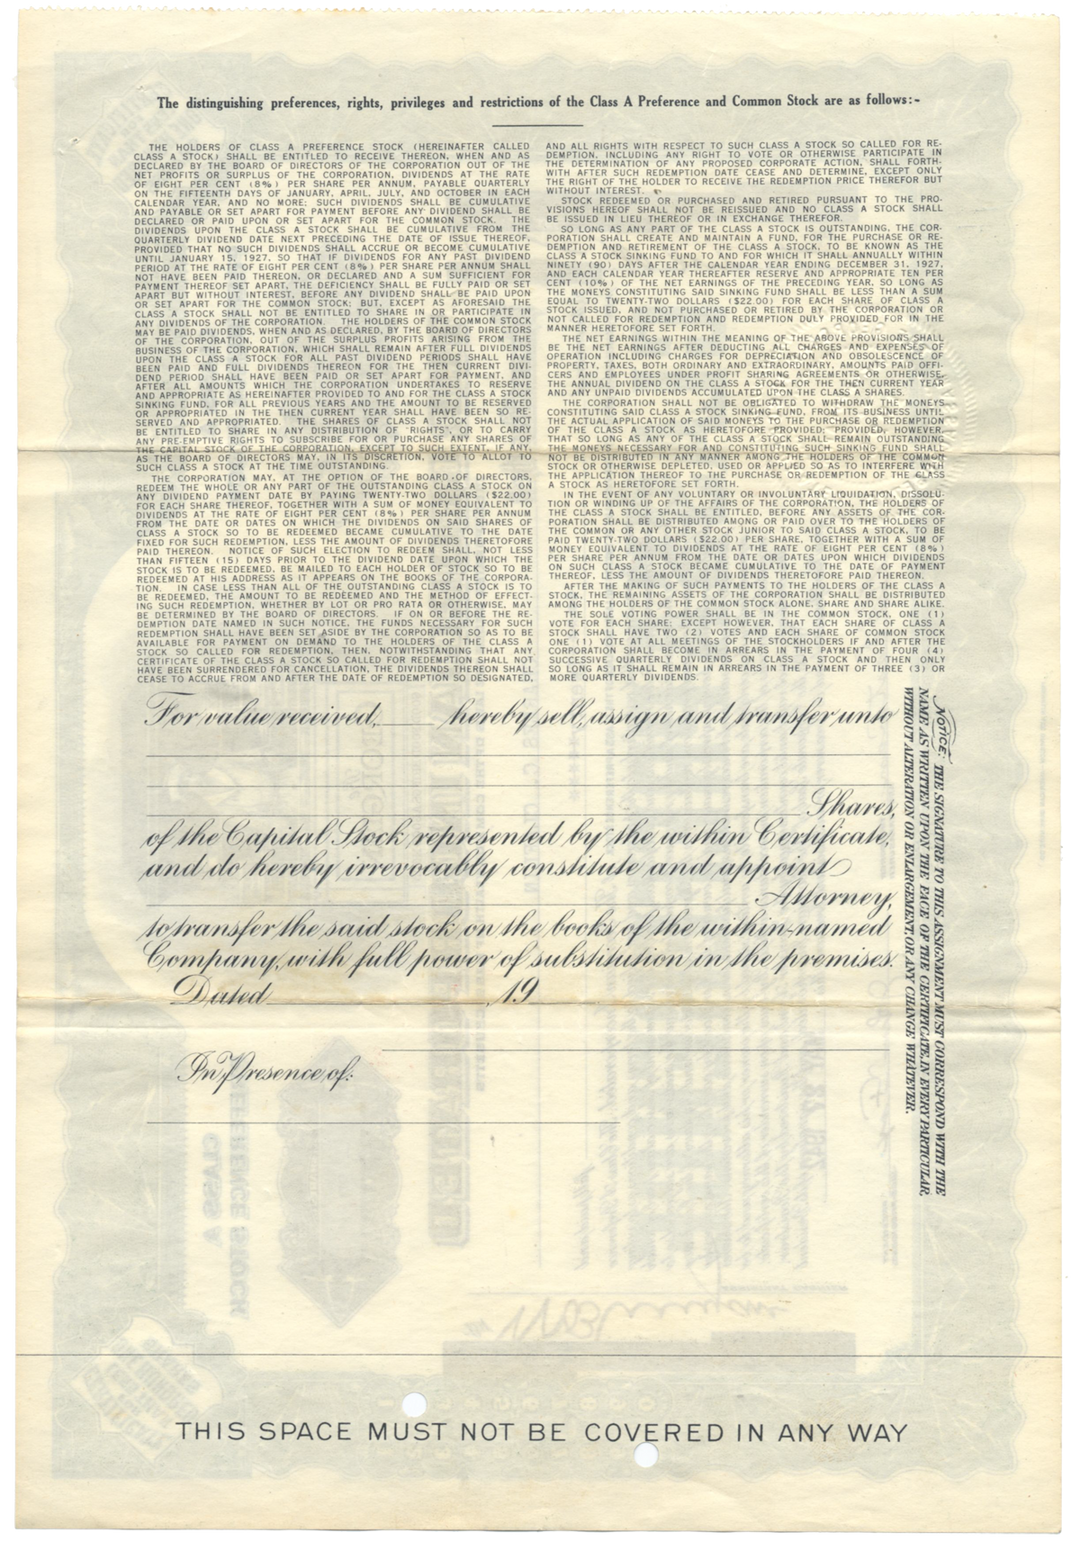 The distinguishing preferences, rights, privileges and restrictions of the Class A Preference and Common Stock are as follows:-
THE HOLDERS OF CLASS A PREFERENCE STOCK (HEREINAFTER CALLED
CLASS A STOCK) SHALL BE ENTITLED TO RECEIVE THEREON, WHEN AND AS
DECLARED BY THE BOARD OF DIRECTORS OF THE CORPORATION OUT OF THE
NET PROFITS OR SURPLUS OF THE CORPORATION, DIVIDENDS AT THE RATE
OF EIGHT PER CENT (8%) PER SHARE PER ANNUM, PAYABLE QUARTERLY
ON THE FIFTEENTH DAYS OF JANUARY, APRIL, JULY, AND OCTOBER IN EACH
CALENDAR YEAR, AND NO MORE; SUCH DIVIDENDS SHALL BE CUMULATIVE
AND PAYABLE OR SET APART FOR PAYMENT BEFORE ANY DIVIDEND SHALL BE
DECLARED OR PAID UPON OR SET APART FOR THE COMMON STOCK. THE
DIVIDENDS UPON THE CLASS A STOCK SHALL BE CUMULATIVE FROM THE
QUARTERLY DIVIDEND DATE NEXT PRECEDING THE DATE OF ISSUE THEREOF,
PROVIDED THAT NO SUCH DIVIDENDS SHALL ACCRUE OR BECOME CUMULATIVE
UNTIL JANUARY 15, 1927, SO THAT IF DIVIDENDS FOR ANY PAST DIVIDEND
PERIOD AT THE RATE OF EIGHT PER CENT (8%) PER SHARE PER ANNUM SHALL
NOT HAVE BEEN PAID THEREON, OR DECLARED AND A SUM SUFFICIENT FOR
PAYMENT THEREOF SET APART, THE DEFICIENCY SHALL BE FULLY PAID OR SET
APART BUT WITHOUT INTEREST, BEFORE ANY DIVIDEND SHALL BE PAID UPON
OR SET APART FOR THE COMMON STOCK; BUT, EXCEPT AS AFORESAID THE
CLASS A STOCK SHALL NOT BE ENTITLED TO SHARE IN OR PARTICIPATE IN
ANY DIVIDENDS OF THE CORPORATION. THE HOLDERS OF THE COMMON STOCK
MAY BE PAID DIVIDENDS, WHEN AND AS DECLARED, BY THE BOARD OF DIRECTORS
OF THE CORPORATION, OUT OF THE SURPLUS PROFITS ARISING FROM THE
BUSINESS OF THE CORPORATION, WHICH SHALL REMAIN AFTER FULL DIVIDENDS
UPON THE CLASS A STOCK FOR ALL PAST DIVIDEND PERIODS SHALL HAVE
BEEN PAID AND FULL DIVIDENDS THEREON FOR THE THEN CURRENT DIVI-
DEND PERIOD SHALL HAVE BEEN PAID OR SET APART FOR PAYMENT, AND
AFTER ALL AMOUNTS WHICH THE CORPORATION UNDERTAKES TO RESERVE
AND APPROPRIATE AS HEREINAFTER PROVIDED TO AND FOR THE CLASS A STOCK
SINKING FUND, FOR ALL PREVIOUS YEARS AND THE AMOUNT TO BE RESERVED
OR APPROPRIATED IN THE THEN CURRENT YEAR SHALL HAVE BEEN SO RE-
SERVED AND APPROPRIATED. THE SHARES OF CLASS A STOCK SHALL NOT
BE ENTITLED TO SHARE IN ANY DISTRIBUTION OF "RIGHTS", OR TO CARRY
ANY PRE-EMPTIVE RIGHTS TO SUBSCRIBE FOR OR PURCHASE ANY SHARES OF
THE CAPITAL STOCK OF THE CORPORATION, EXCEPT TO SUCH EXTENT, IF ANY,
AS THE BOARD OF DIRECTORS MAY, IN ITS DISCRETION, VOTE TO ALLOT TO
SUCH CLASS A STOCK AT THE TIME OUTSTANDING.
THE CORPORATION MAY, AT THE OPTION OF THE BOARD OF DIRECTORS,
REDEEM THE WHOLE OR ANY PART OF THE OUTSTANDING CLASS A STOCK ON
ANY DIVIDEND PAYMENT DATE BY PAYING TWENTY-TWO DOLLARS ($22.00)
FOR EACH SHARE THEREOF, TOGETHER WITH A SUM OF MONEY EQUIVALENT TO
DIVIDENDS AT THE RATE OF EIGHT PER CENT (8%) PER SHARE PER ANNUM
FROM THE DATE OR DATES ON WHICH THE DIVIDENDS ON SAID SHARES OF
CLASS A STOCK SO TO BE REDEEMED BECAME CUMULATIVE TO THE DATE
FIXED FOR SUCH REDEMPTION, LESS THE AMOUNT OF DIVIDENDS THERETOFORE
PAID THEREON. NOTICE OF SUCH ELECTION TO REDEEM SHALL, NOT LESS
THAN FIFTEEN (15) DAYS PRIOR TO THE DIVIDEND DATE UPON WHICH THE
STOCK IS TO BE REDEEMED, BE MAILED TO EACH HOLDER OF STOCK SO TO BE
REDEEMED AT HIS ADDRESS AS IT APPEARS ON THE BOOKS OF THE CORPORA-
TION. IN CASE LESS THAN ALL OF THE OUTSTANDING CLASS A STOCK IS TO
BE REDEEMED, THE AMOUNT TO BE REDEEMED AND THE METHOD OF EFFECT-
ING SUCH REDEMPTION, WHETHER BY LOT OR PRO RATA OR OTHERWISE, MAY
BE DETERMINED BY THE BOARD OF DIRECTORS. IF ON OR BEFORE THE RE-
DEMPTION DATE NAMED IN SUCH NOTICE, THE FUNDS NECESSARY FOR SUCH
REDEMPTION SHALL HAVE BEEN SET ASIDE BY THE CORPORATION SO AS TO BE
AVAILABLE FOR PAYMENT ON DEMAND TO THE HOLDERS OF THE CLASS A
STOCK SO CALLED FOR REDEMPTION, THEN, NOTWITHSTANDING THAT ANY
CERTIFICATE OF THE CLASS A STOCK SO CALLED FOR REDEMPTION SHALL NOT
HAVE BEEN SURRENDERED FOR CANCELLATION, THE DIVIDENDS THEREON SHALL
CEASE TO ACCRUE FROM AND AFTER THE DATE OF REDEMPTION SO DESIGNATED,
AND ALL RIGHTS WITH RESPECT TO SUCH CLASS A STOCK SO CALLED FOR RE-
DEMPTION, INCLUDING ANY RIGHT TO VOTE OR OTHERWISE PARTICIPATE IN
THE DETERMINATION OF ANY PROPOSED CORPORATE ACTION, SHALL FORTH-
WITH AFTER SUCH REDEMPTION DATE CEASE AND DETERMINE, EXCEPT ONLY
THE RIGHT OF THE HOLDER TO RECEIVE THE REDEMPTION PRICE THEREFOR BUT
WITHOUT INTEREST.
STOCK REDEEMED OR PURCHASED AND RETIRED PURSUANT TO THE PRO-
VISIONS HEREOF SHALL NOT BE REISSUED AND NO CLASS A STOCK SHALL
BE ISSUED IN LIEU THEREOF OR IN EXCHANGE THEREFOR.
SO LONG AS ANY PART OF THE CLASS A STOCK IS OUTSTANDING, THE COR-
PORATION SHALL CREATE AND MAINTAIN A FUND, FOR THE PURCHASE OR RE-
DEMPTION AND RETIREMENT OF THE CLASS A STOCK, TO BE KNOWN AS THE
CLASS A STOCK SINKING FUND TO AND FOR WHICH IT SHALL ANNUALLY WITHIN
NINETY (90) DAYS AFTER THE CALENDAR YEAR ENDING DECEMBER 31, 1927,
AND EACH CALENDAR YEAR THEREAFTER RESERVE AND APPROPRIATE TEN PER
CENT (10%) OF THE NET EARNINGS OF THE PRECEDING YEAR, SO LONG AS
THE MONEYS CONSTITUTING SAID SINKING FUND SHALL BE LESS THAN A SUM
EQUAL TO TWENTY-TWO DOLLARS ($22.00) FOR EACH SHARE OF CLASS A
STOCK ISSUED, AND NOT PURCHASED OR RETIRED BY THE CORPORATION OR
NOT CALLED FOR REDEMPTION AND REDEMPTION DULY PROVIDED FOR IN THE
MANNER HERETOFORE SET FORTH.
THE NET EARNINGS WITHIN THE MEANING OF THE ABOVE PROVISIONS SHALL
BE THE NET EARNINGS AFTER DEDUCTING ALL CHARGES AND EXPENSES OF
OPERATION INCLUDING CHARGES FOR DEPRECIATION AND OBSOLESCENCE OF
PROPERTY, TAXES, BOTH ORDINARY AND EXTRAORDINARY, AMOUNTS PAID OFFI-
CERS AND EMPLOYEES UNDER PROFIT SHARING AGREEMENTS OR OTHERWISE,
THE ANNUAL DIVIDEND ON THE CLASS A STOCK FOR THE THEN CURRENT YEAR
AND ANY UNPAID DIVIDENDS ACCUMULATED UPON THE CLASS A SHARES.
THE CORPORATION SHALL NOT BE OBLIGATED TO WITHDRAW THE MONEYS
CONSTITUTING SAID CLASS A STOCK SINKING FUND, FROM ITS BUSINESS UNTIL
THE ACTUAL APPLICATION OF SAID MONEYS TO THE PURCHASE OR REDEMPTION
OF CLASS A STOCK AS HERETOFORE PROVIDED; PROVIDED, HOWEVER,
THAT SO LONG AS ANY OF THE CLASS A STOCK SHALL REMAIN OUTSTANDING
THE MONEYS NECESSARY FOR AND CONSTITUTING SUCH SINKING FUND SHALL
NOT BE DISTRIBUTED IN ANY MANNER AMONG THE HOLDERS OF THE COMMON
STOCK OR OTHERWISE DEPLETED, USED OR APPLIED SO AS TO INTERFERE WITH
THE APPLICATION THEREOF TO THE PURCHASE OR REDEMPTION OF THE CLASS
A STOCK AS HERETOFORE SET FORTH.
IN THE EVENT OF ANY VOLUNTARY OR INVOLUNTARY LIQUIDATION, DISSOLU-
TION OR WINDING UP OF THE AFFAIRS OF THE CORPORATION, THE HOLDERS OF
THE CLASS A STOCK SHALL BE ENTITLED, BEFORE ANY ASSETS OF THE COR-
PORATION SHALL BE DISTRIBUTED AMONG OR PAID OVER TO THE HOLDERS OF
THE COMMON OR ANY OTHER STOCK JUNIOR TO SAID CLASS A STOCK, TO BE
PAID TWENTY-TWO DOLLARS ($22.00) PER SHARE, TOGETHER WITH A SUM OF
MONEY EQUIVALENT TO DIVIDENDS AT THE RATE OF EIGHT PER CENT (8%)
PER SHARE PER ANNUM FROM THE DATE OR DATES UPON WHICH DIVIDENDS
ON SUCH CLASS A STOCK BECAME CUMULATIVE TO THE DATE OF PAYMENT
THEREOF, LESS THE AMOUNT OF DIVIDENDS THERETOFORE PAID THEREON.
AFTER THE MAKING OF SUCH PAYMENTS TO THE HOLDERS OF THE CLASS A
STOCK, THE REMAINING ASSETS OF THE CORPORATION SHALL BE DISTRIBUTED
AMONG THE HOLDERS OF THE COMMON STOCK ALONE, SHARE AND SHARE ALIKE.
THE SOLE VOTING POWER SHALL BE IN THE COMMON STOCK, ONE (1)
VOTE FOR EACH SHARE; EXCEPT HOWEVER, THAT EACH SHARE OF CLASS A
STOCK SHALL HAVE TWO (2) VOTES AND EACH SHARE OF COMMON STOCK
ONE (1) VOTE AT ALL MEETINGS OF THE STOCKHOLDERS IF AND AFTER THE
CORPORATION SHALL BECOME IN ARREARS IN THE PAYMENT OF FOUR (4)
SUCCESSIVE QUARTERLY DIVIDENDS ON CLASS A STOCK AND THEN ONLY
SO LONG AS IT SHALL REMAIN IN ARREARS IN THE PAYMENT OF THREE (3) OR
MORE QUARTERLY DIVIDENDS.
For value received, hereby sell, assign and transfer unto
Shares,
of the Capital Stock represented by the within Certificate,
and do hereby irrevocably constitute and appoint
Attorney,
to transfer the said stock on the books of the within-named
Company, with full power of substitution in the premises.
Dated , 19
In Presence of:
NOTICE: THE SIGNATURE TO THIS ASSIGNMENT MUST CORRESPOND WITH THE
NAME AS WRITTEN UPON THE FACE OF THE CERTIFICATE, IN EVERY PARTICULAR,
WITHOUT ALTERATION OR ENLARGEMENT, OR ANY CHANGE WHATEVER.
THIS SPACE MUST NOT BE COVERED IN ANY WAY